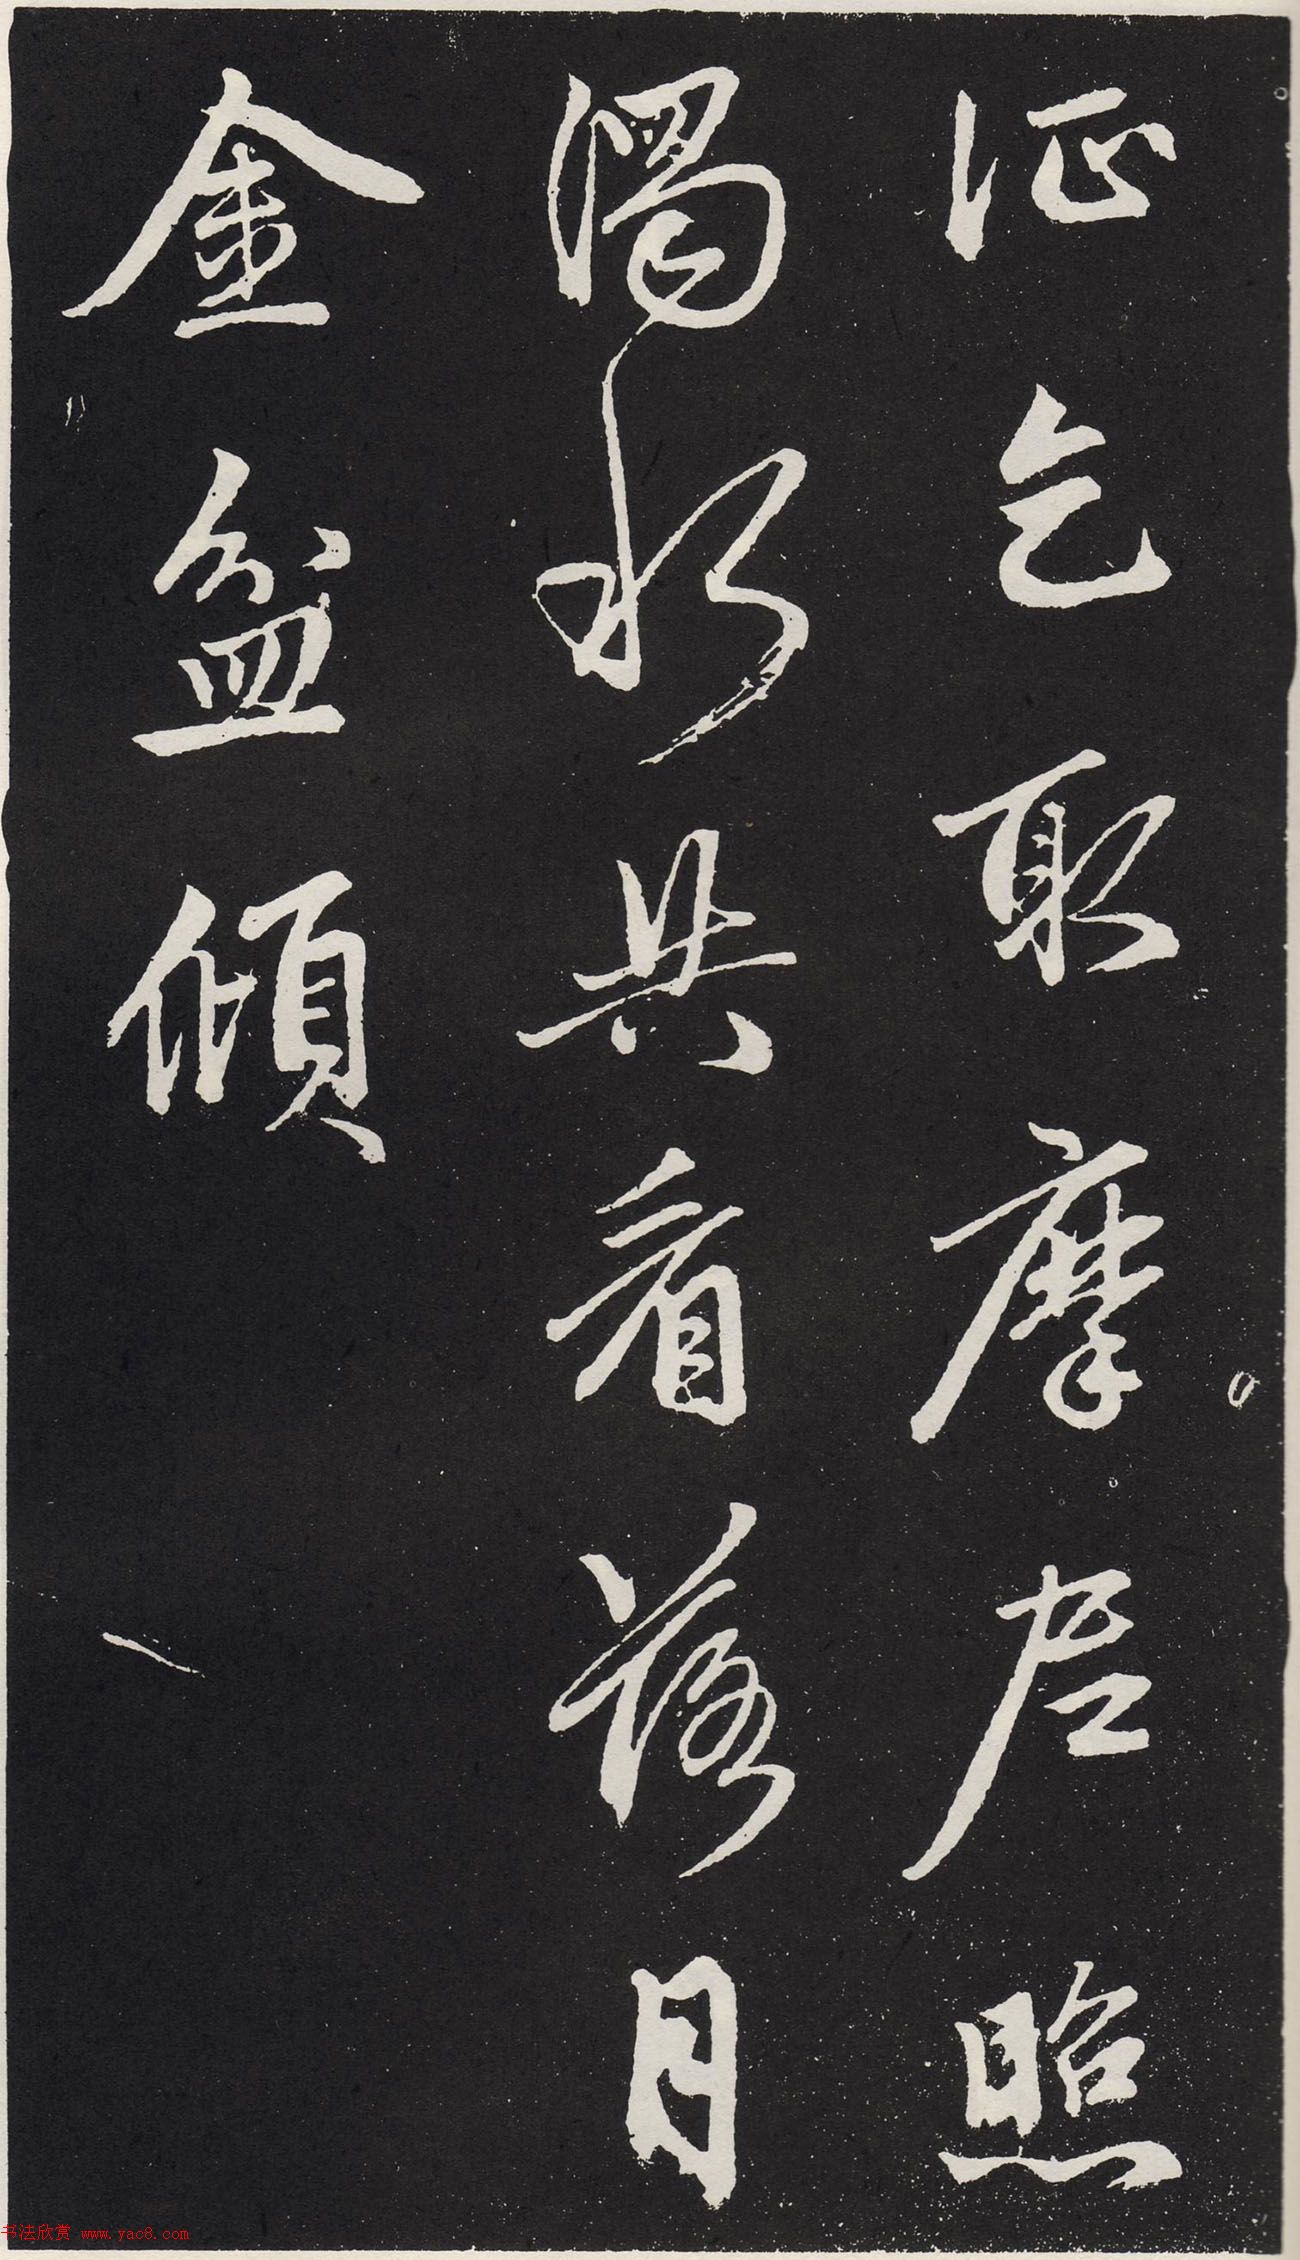 证乞取摩尼照
濁水共看落月
金盆傾
书法欣赏 www.yac8.com